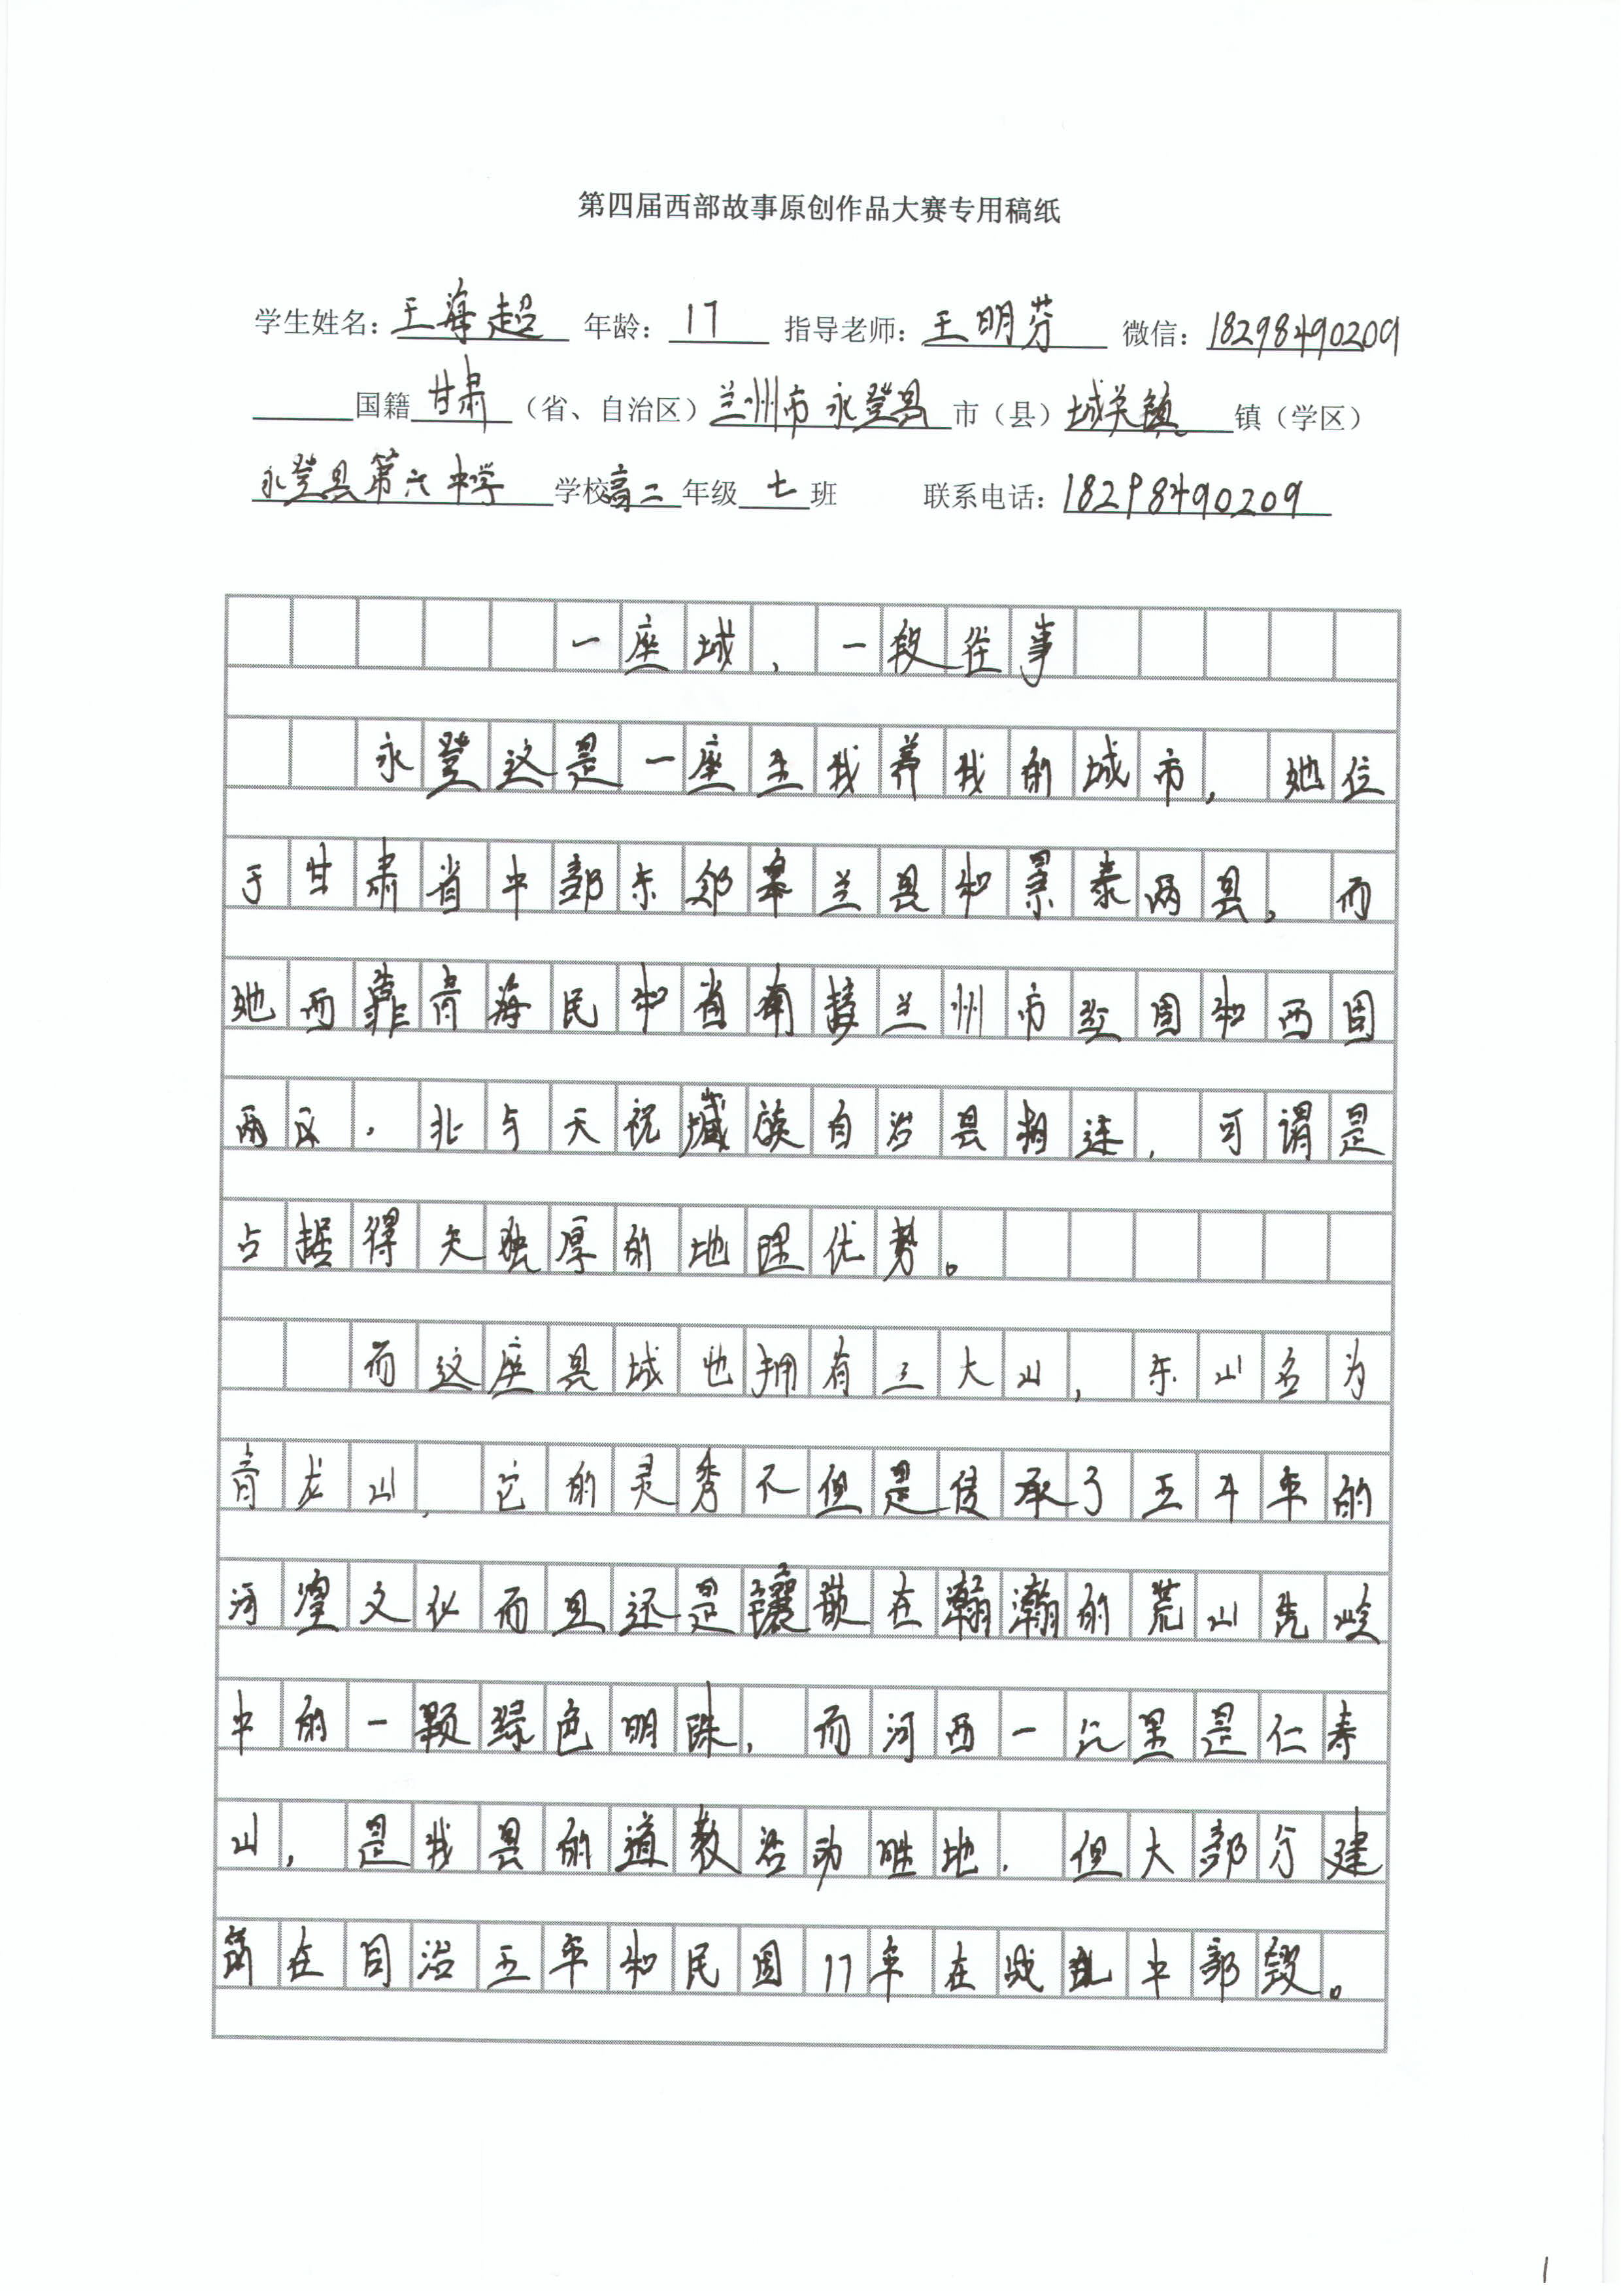 第四届西部故事原创作品大赛专用稿纸
学生姓名：王海超 年龄：17 指导老师：王明芬 微信：18298490209
国籍甘肃（省、自治区）兰州市永登县市（县）城关镇镇（学区）
永登县第六中学学校高二年级七班 联系电话：18298490209
一座城，一段往事
永登这是一座生我养我的城市，她位
于甘肃省中部东邻皋兰县和景泰两县，而
她西靠青海民和省南接兰州市红固和西固
两区，北与天祝藏族自治县相连，可谓是
占据得天独厚的地理优势。
而这座县城也拥有三大山，东山名为
青龙山，它的灵秀不但是传承了五千年的
河湟文化而且还是镶嵌在瀚瀚的荒山秃岭
中的一颗绿色明珠，而河西一公里是仁寿
山，是我县的道教活动胜地，但大部分建
筑在同治五年和民国17年在战乱中部毁。
1